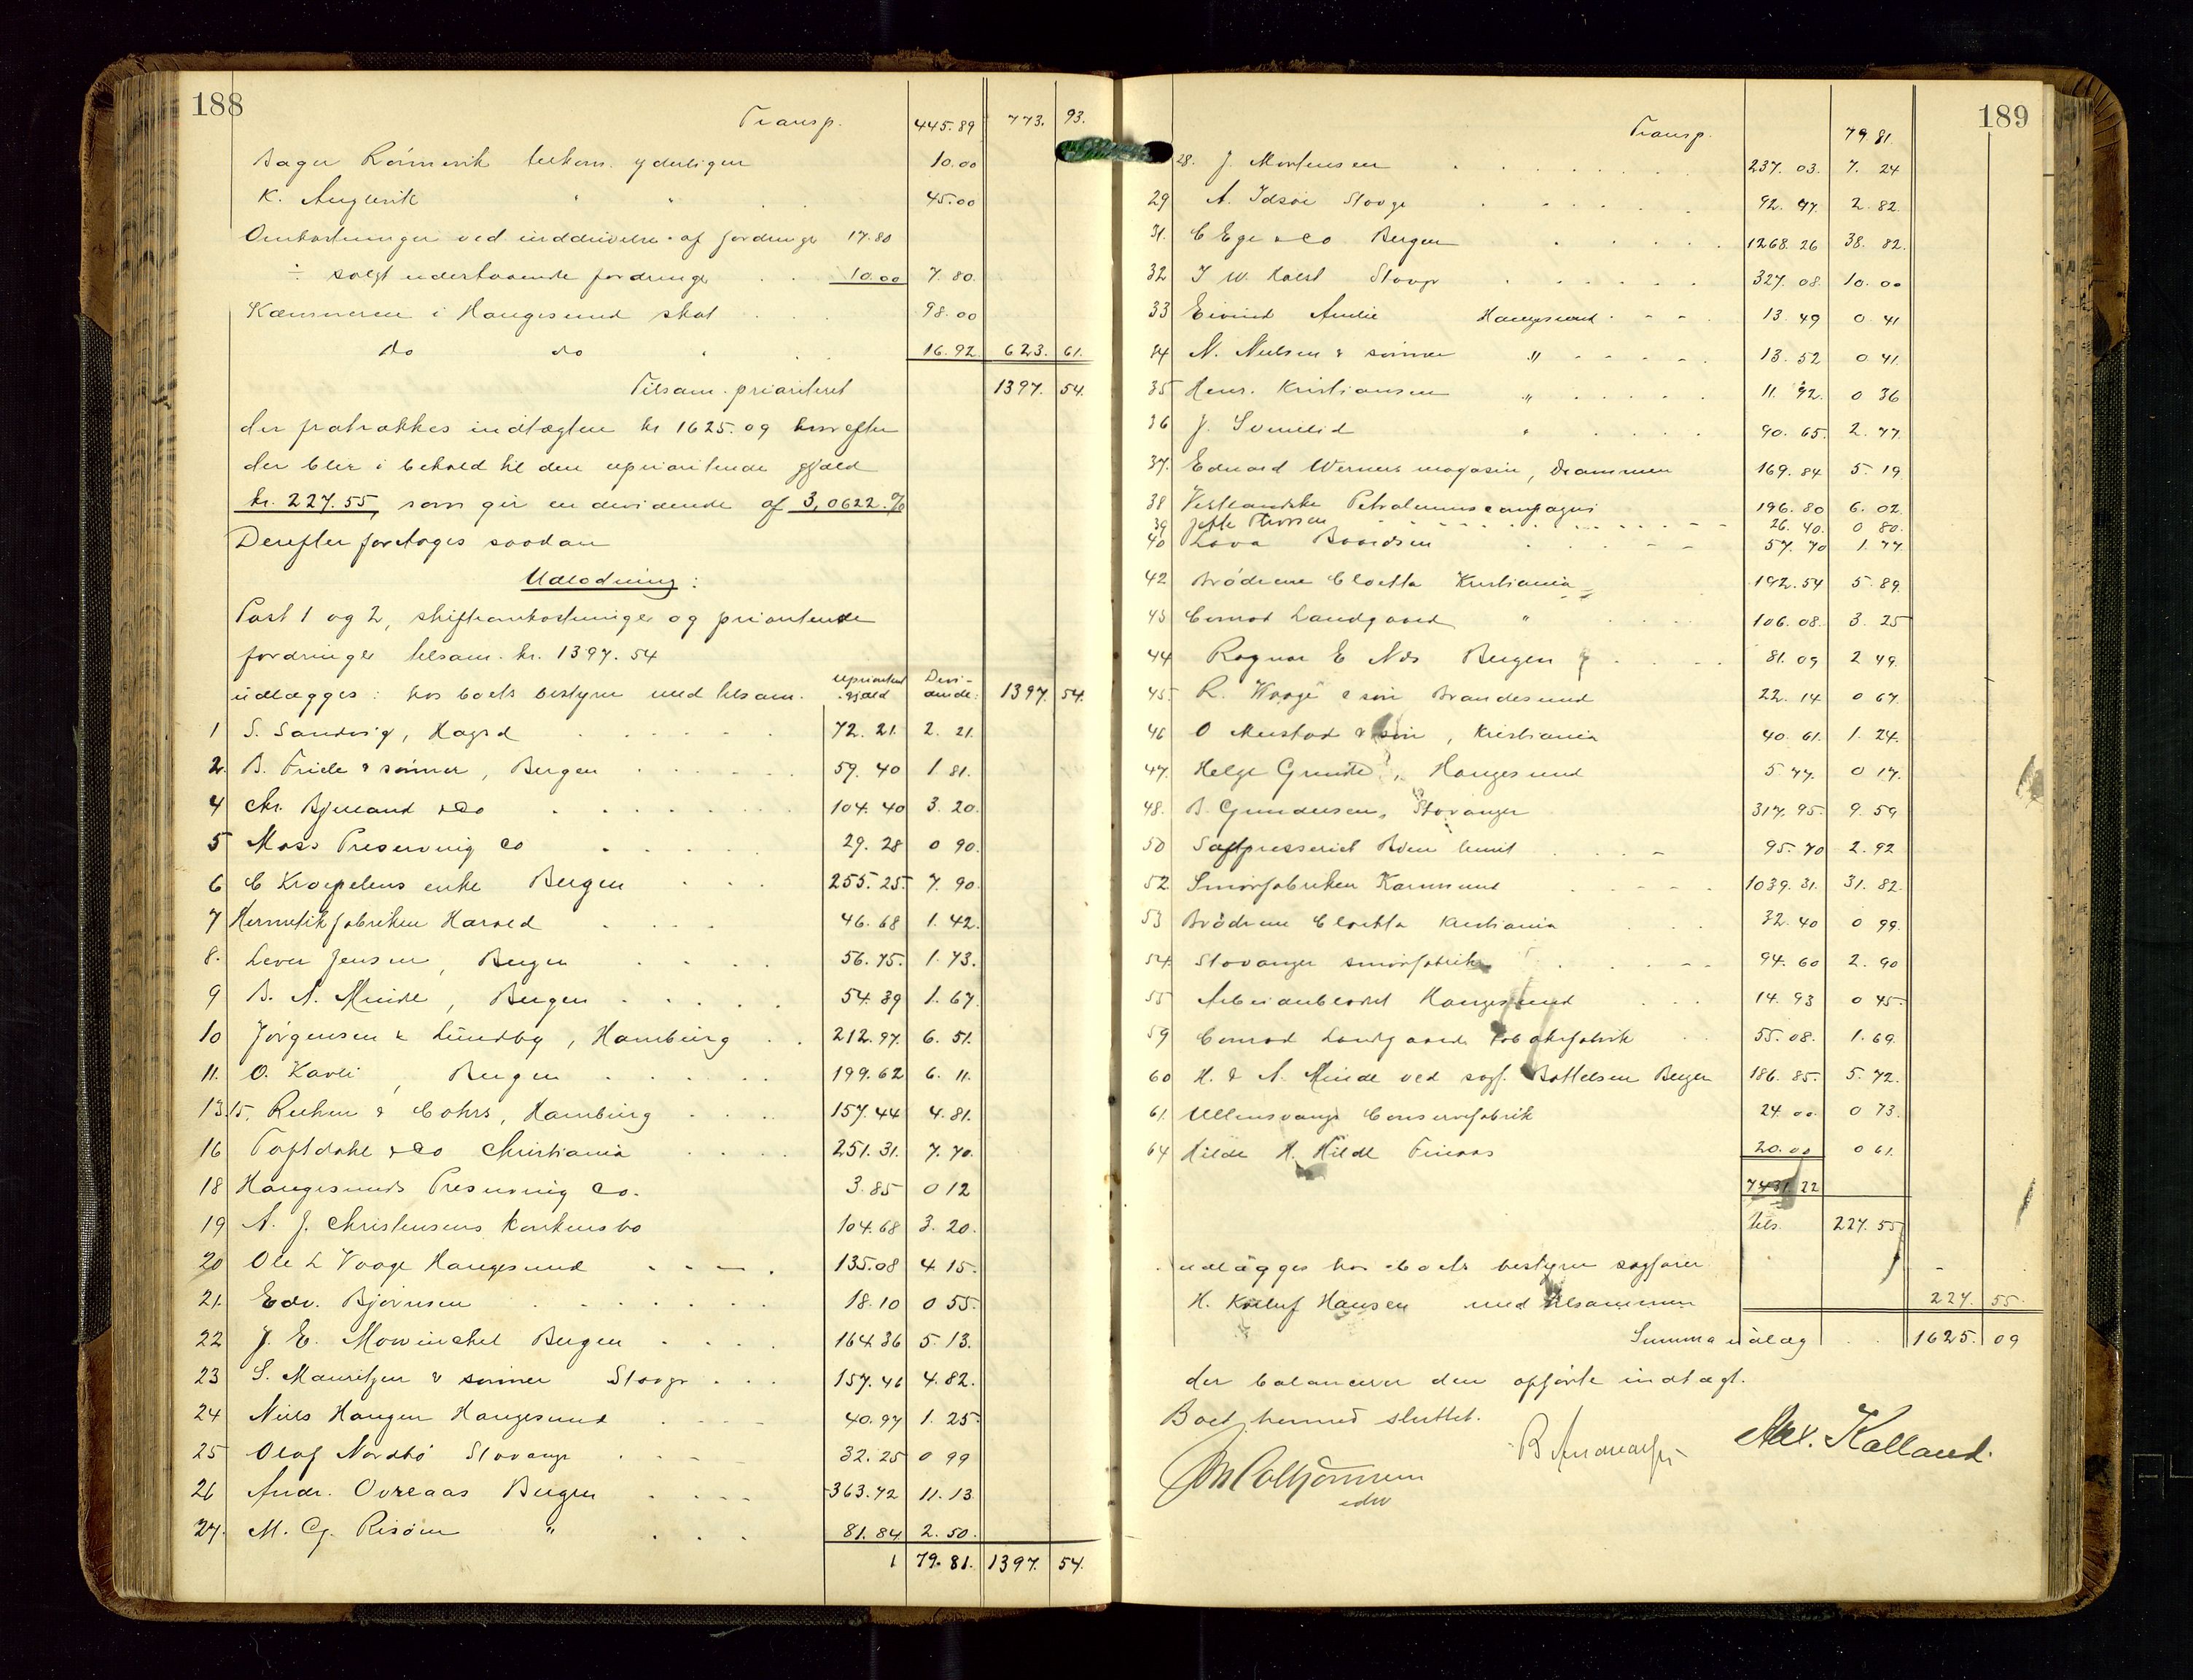 188
Transp. 445.89 773. 93.
Bager Rönnevik tilkom. yderligere 10.00
K. Anglevik " " 45.00
Omkostninger ved inddrivelse af fordringer 17.80
÷ solgt udestaaende fordringer 10.00 7.80.
Kæmneren i Haugesund skat 98.00
do do 16.92 623. 61.
Tilsam. prioriteret 1397. 54.
der fratrækkes indtægten kr 1625.09 hvorefter
der blir i behold til den uprioriterede gjæld
kr. 227.55, som gir en dividende af 3,0622 %
Derefter foretoges saadan
Udlodning:
Post 1 og 2, skifteomkostninger og prioriterede
fordringer tilsam. kr. 1397.54
udlægges: hos boets bestyrer med tilsam. uprioritert gjæld Divi-dende: 1397. 54.
1 S. Sandvig, Hagsd 72.21 2.21.
2. B. Friele & sönner, Bergen 59.40 1.81.
4 Chr. Bjelland & Co 104.40 3.20.
5 Moss Preserving Co 29.28 0 90.
6 C Kroepeliens enke Bergen 255.25. 7.90.
7 Hermetikfabriken Harald 46.68 1.42.
8. Lever Jensen, Bergen 56.75. 1.73.
9 B. A. Minde, Bergen 54.39 1.67.
10 Jörgensen & Lundby, Hamburg 212.97. 6.51.
11. O. Kavli, Bergen 199.62 6.11.
13.15. Ruhen & Cohrs, Hamburg 157.44 4.81.
16 Toftdahl & Co Christiania 251.31. 7.70.
18 Haugesunds Preserving Co. 3.85 0 12
19 A. J. Christensens konkursbo 104.68 3.20.
20 Ole L Vaage Haugesund 135.08 4 15.
21. Edv. Bjørnsen 18.10 0 55.
22 J. E. Mowinckel Bergen 164.36 5.13.
23 S. Mauritzen & sönner Stavgr 157.46 4.82.
24 Niels Haugen Haugesund 40.97 1.25.
25 Olaf Nordbö Stavangr 32.25 0 99
26 Andr. Overaas Bergen 363.72 11.13.
27. M. G. Risöen " 81.84 2.50.
1 79.81. 1397. 54.
189
Transp. 79.81.
28. J. Mortensen 237.03. 7.24
29 A. Idsöe Stavgr 92.97. 2.82.
31. C Ege & Co Bergen 1268.26 38.82.
32 I W. Holst Stavgr 327.08. 10.00
33 Eivind Amlie Haugesund 13.49 0 41
34 N. Nielsen & sönner " 13.52 0 41.
35 Henr. Kristiansen " 11.92. 0 36
36 J. Svendlid " 90.65. 2.77.
37. Eduard Werners magasin, Drammen 169.84 5.19
38 Vestlandske Petroleumscompagni 196.80 6.02.
39 Jofte Thorsen 26.40. 0 80.
40 Lava Baardsen 57.70 1.77.
42 Brödrene Cloetta Kristiania 192.54 5.89.
43 Conrad Landgaard " 106.08. 3.25
44 Ragnar E Næs Bergen 81.09 2 49.
45. R. Waage & sön Brandesund 22.14 0 67.
46 O Mustad & sön, Kristiania 40.61. 1.24.
47. Helge Grinde, Haugesund 5 77. 0 17.
48. B. Gundersen, Stavanger 317.95. 9.59
50 Saftpresseriet Bden lund 95.70 2.92
52 Smörfabriken Karmsund 1039.31. 31.82.
53 Brödrene Cloetta Kristiania 32.40 0 99.
54. Stavanger smörfabrik 94.60 2.90
55 Arbeiderbladet Haugesund 14.93 0 45.
59 Conrad Landgaards tobaksfabrik 55.08. 1.69.
60 H. & A. Minde ved sagf. Bottelsen Bergen 186.85. 5.72.
61. Ullensvangs Conservefabrik 24.00 0 73.
64 Hilde H. Hilde Finaas 20.00 0 61.
7431.22
tils. 227.55
udlægges hos boets bestyrer sagförer
H. Kolluf Hansen med tilsammen 227. 55.
Summa udlæg 1625. 09
der balancerer den opförte indtægt.
Boet hermed sluttet.
Alex. Kalland.